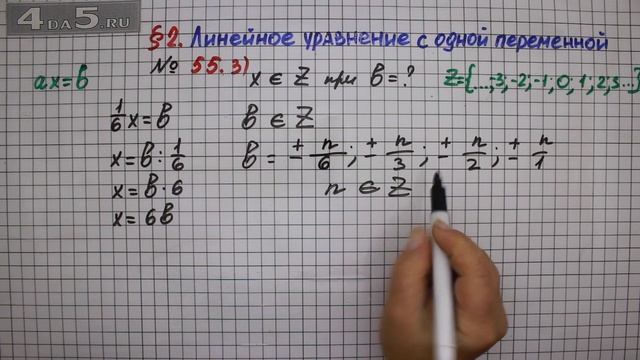 4DA5.RU
§2. Линейное уравнение с одной переменной
№ 55. 3)
ax=b
x ∈ Z при b=?
Z={...;-3;-2;-1;0;1;2;3...}
1/6 x = b
x = b : 1/6
x = b · 6
x = 6b
b ∈ Z
b = ± n/6; ± n/3; ± n/2; ± n/1
n ∈ Z